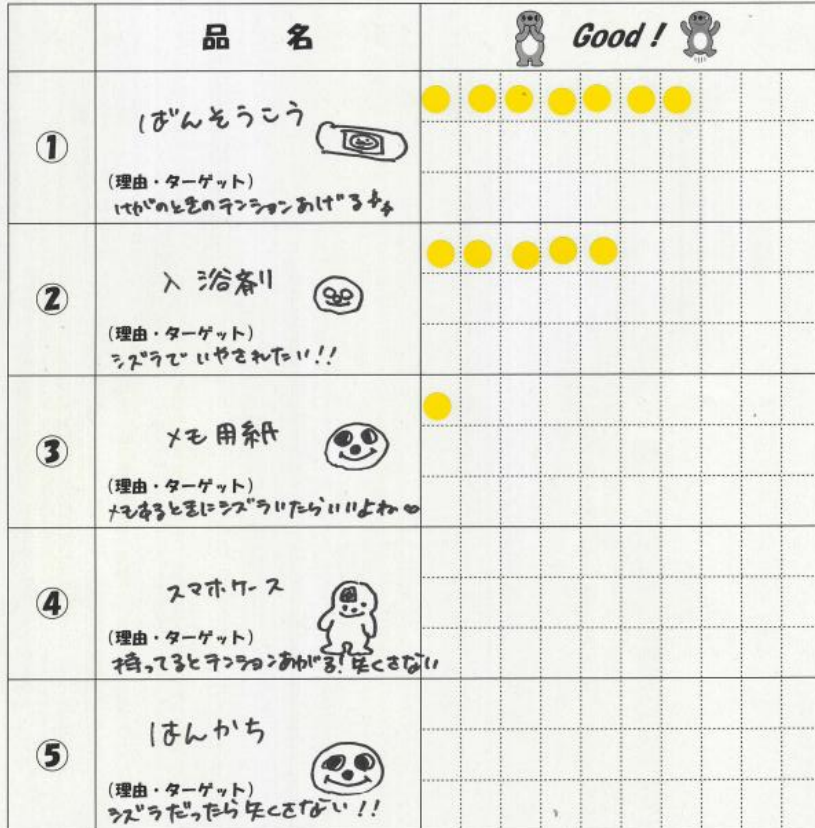 品名
Good!
①
ばんそうこう
(理由・ターゲット)
けがのときのテンションあげる
②
入浴剤
(理由・ターゲット)
シズラでいやされたい!!
③
メモ用紙
(理由・ターゲット)
メモするときにシズラいたらいいよね♡
④
スマホケース
(理由・ターゲット)
持ってるとテンションあがる!失くさない
⑤
はんかち
(理由・ターゲット)
シズラだったら失くさない!!